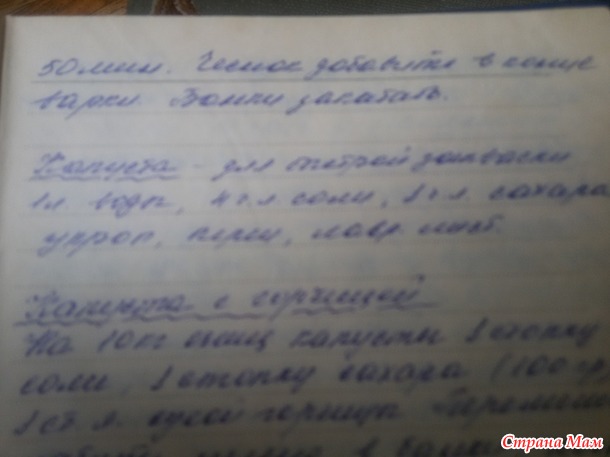 50 мин. Чеснок добавить в конце
варки. Банки закатать.
Капуста - для быстрой закваски
1 л. воды, 4 ч.л соли, 1 ч л. сахара
укроп, перец, лавр. лист.
Капуста с горчицей
На 10 кг капусты 1 стопку
соли, 1 стопку сахара (100 гр)
1 ст. л. сухой горчицы
в
Страна Мам